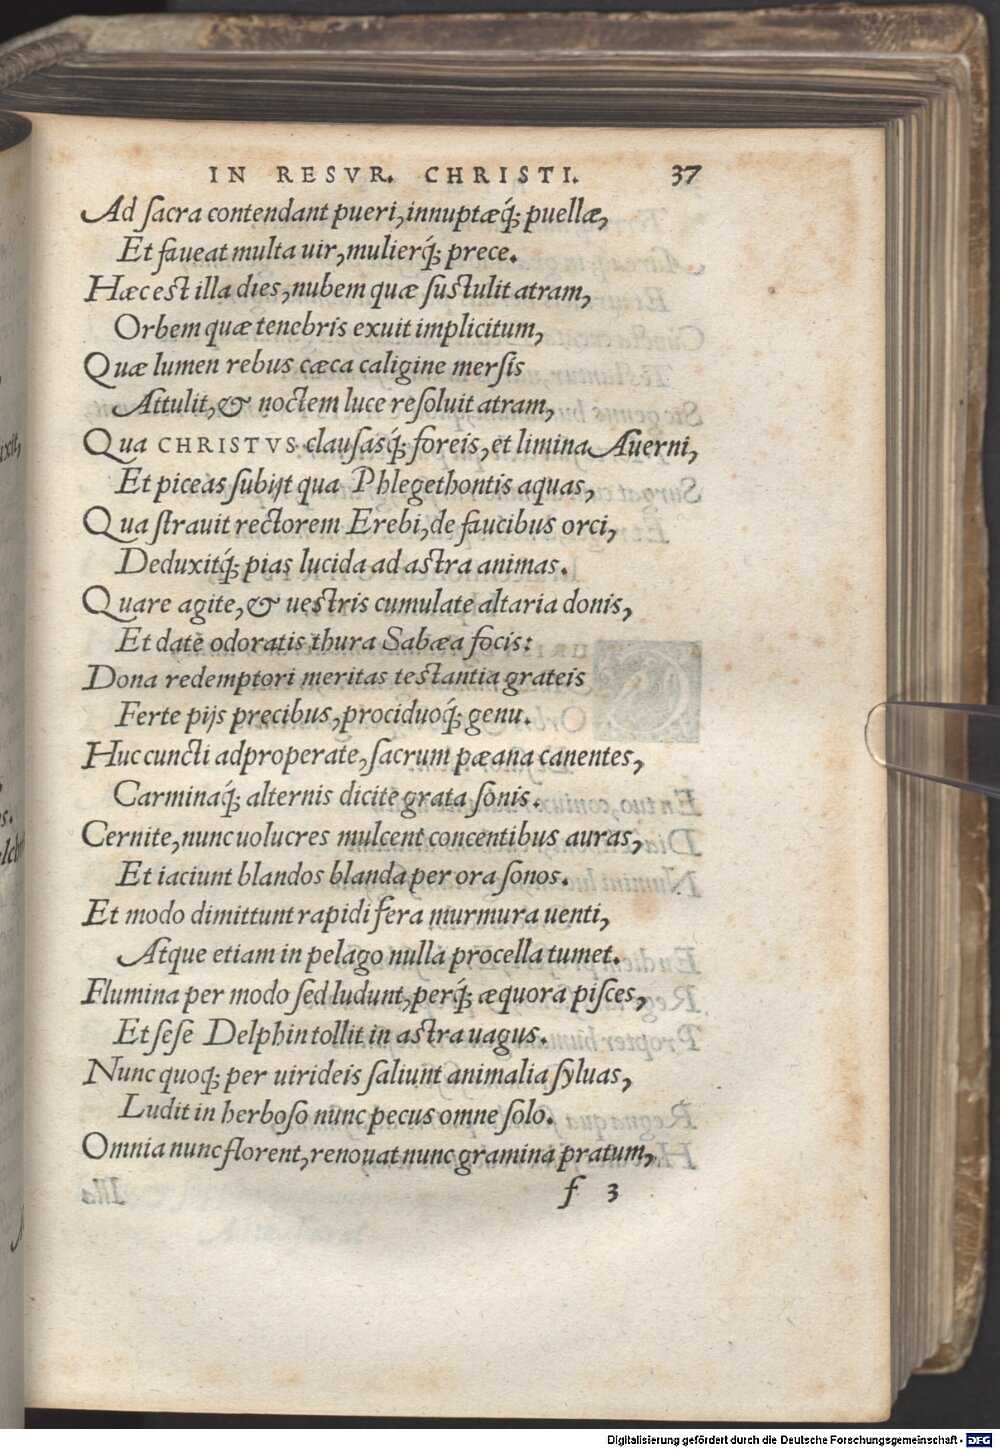 IN RESVR. CHRISTI. 37
Ad sacra contendant pueri, innuptæq́; puellæ,
Et faueat multa uir, mulierq́; prece.
Hæc est illa dies, nubem quæ sustulit atram,
Orbem quæ tenebris exuit implicitum,
Quæ lumen rebus cæca caligine mersis
Attulit, & noctem luce resoluit atram,
Qua CHRISTVS clausasq́; foreis, et limina Auerni,
Et piceas subijt qua Phlegethontis aquas,
Qua strauit rectorem Erebi, de faucibus orci,
Deduxitq́; pias lucida ad astra animas.
Quare agite, & uestris cumulate altaria donis,
Et date odoratis thura Sabæa focis:
Dona redemptori meritas testantia grateis
Ferte pijs precibus, prociduoq́; genu.
Huc cuncti adproperate, sacrum pæana canentes,
Carminaq́; alternis dicite grata sonis.
Cernite, nunc uolucres mulcent concentibus auras,
Et iaciunt blandos blanda per ora sonos.
Et modo dimittunt rapidi fera murmura uenti,
Atque etiam in pelago nulla procella tumet.
Flumina per modo sed ludunt, perq́; æquora pisces,
Et sese Delphin tollit in astra uagus.
Nunc quoq; per uirideis saliunt animalia syluas,
Ludit in herboso nunc pecus omne solo.
Omnia nunc florent, renouat nunc gramina pratum,
f 3
Digitalisierung gefördert durch die Deutsche Forschungsgemeinschaft - DFG